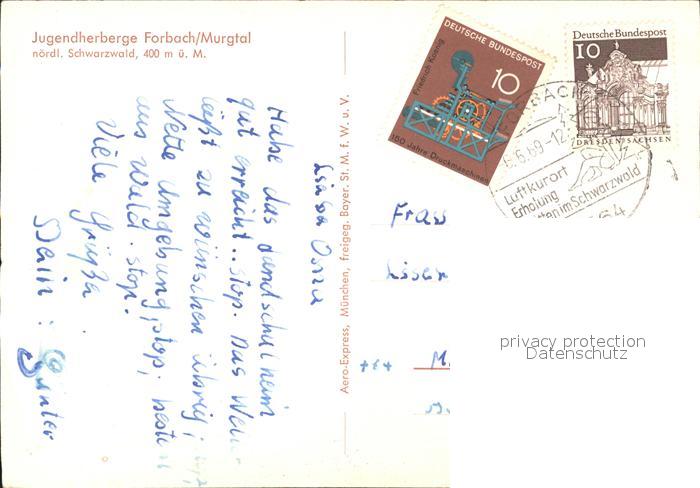 Jugendherberge Forbach/Murgtal
nördl. Schwarzwald, 400 m ü. M.
Habe das Landschulheim
gut erreicht.. stop. Das
läßt zu wünschen übrig;
Nette Umgebung, stop;
aus Wald. stop.
Viele Grüße.
Dein: Günter
Aero-Express, München, freigeg. Bayer. St. M. f. W. u. V.
DEUTSCHE BUNDESPOST
Friedrich Koenig
10
150 Jahre Druckmaschinen
Deutsche Bundespost
10
DRESDEN/SACHSEN
6.69-12
Luftkurort
Erholung
im Schwarzwald
Frau
+++ M.
privacy protection
Datenschutz